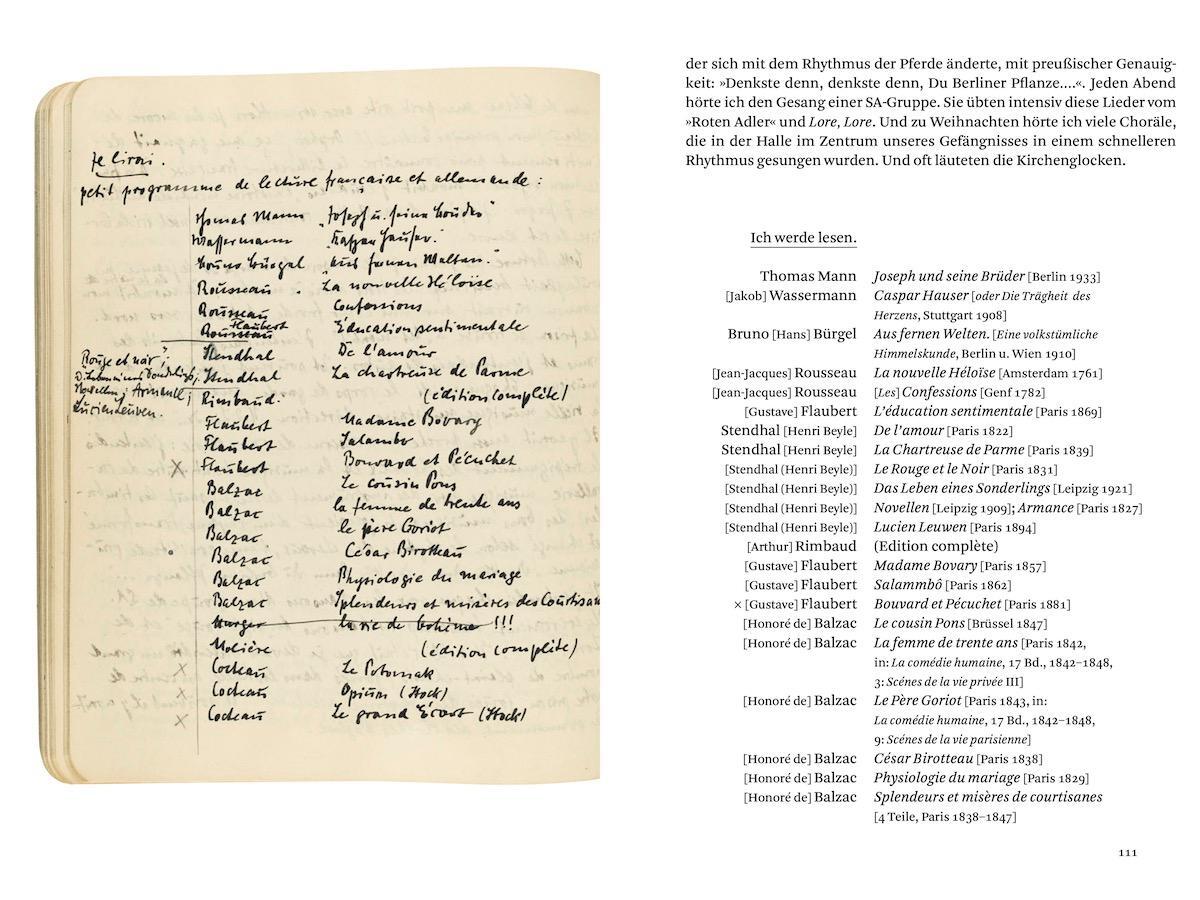 je lirai.
petit programme de lecture française et allemande :
Thomas Mann „Joseph u. seine Brüder"
Wassermann „Caspar Hauser."
Bruno Bürgel „Aus fernen Welten."
Rousseau . La nouvelle Héloïse
Rousseau Confessions
Flaubert
Rousseau Éducation sentimentale
Stendhal De l'amour
Stendhal La chartreuse de Parme
Rimbaud. (édition complète)
Rouge et noir ;
Novellen ; Armance ;
Lucien Leuwen.
Flaubert Madame Bovary
Flaubert Salambo
× Flaubert Bouvard et Pécuchet
Balzac Le cousin Pons
Balzac la femme de trente ans
Balzac le père Goriot
Balzac César Birotteau
Balzac Physiologie du mariage
Balzac Splendeurs et misères des Courtisan
Murger la vie de bohème !!!
Molière (édition complète)
× Cocteau Le Potomak
× Cocteau Opium (Stock)
× Cocteau Le grand Écart (Stock)
der sich mit dem Rhythmus der Pferde änderte, mit preußischer Genauig-
keit: »Denkste denn, denkste denn, Du Berliner Pflanze....«. Jeden Abend
hörte ich den Gesang einer SA-Gruppe. Sie übten intensiv diese Lieder vom
»Roten Adler« und Lore, Lore. Und zu Weihnachten hörte ich viele Choräle,
die in der Halle im Zentrum unseres Gefängnisses in einem schnelleren
Rhythmus gesungen wurden. Und oft läuteten die Kirchenglocken.
Ich werde lesen.
Thomas Mann Joseph und seine Brüder [Berlin 1933]
[Jakob] Wassermann Caspar Hauser [oder Die Trägheit des
Herzens, Stuttgart 1908]
Bruno [Hans] Bürgel Aus fernen Welten. [Eine volkstümliche
Himmelskunde, Berlin u. Wien 1910]
[Jean-Jacques] Rousseau La nouvelle Héloïse [Amsterdam 1761]
[Jean-Jacques] Rousseau [Les] Confessions [Genf 1782]
[Gustave] Flaubert L'éducation sentimentale [Paris 1869]
Stendhal [Henri Beyle] De l'amour [Paris 1822]
Stendhal [Henri Beyle] La Chartreuse de Parme [Paris 1839]
[Stendhal (Henri Beyle)] Le Rouge et le Noir [Paris 1831]
[Stendhal (Henri Beyle)] Das Leben eines Sonderlings [Leipzig 1921]
[Stendhal (Henri Beyle)] Novellen [Leipzig 1909]; Armance [Paris 1827]
[Stendhal (Henri Beyle)] Lucien Leuwen [Paris 1894]
[Arthur] Rimbaud (Edition complète)
[Gustave] Flaubert Madame Bovary [Paris 1857]
[Gustave] Flaubert Salammbô [Paris 1862]
× [Gustave] Flaubert Bouvard et Pécuchet [Paris 1881]
[Honoré de] Balzac Le cousin Pons [Brüssel 1847]
[Honoré de] Balzac La femme de trente ans [Paris 1842,
in: La comédie humaine, 17 Bd., 1842–1848,
3: Scénes de la vie privée III]
[Honoré de] Balzac Le Père Goriot [Paris 1843, in:
La comédie humaine, 17 Bd., 1842–1848,
9: Scénes de la vie parisienne]
[Honoré de] Balzac César Birotteau [Paris 1838]
[Honoré de] Balzac Physiologie du mariage [Paris 1829]
[Honoré de] Balzac Splendeurs et misères de courtisanes
[4 Teile, Paris 1838–1847]
111